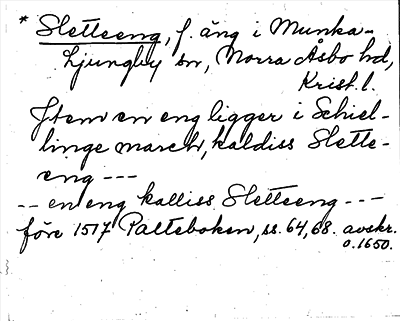 * Sletteeng, f. äng i Munka-
Ljungby sn, Norra Åsbo hd,
Krist. l.
Jtem en eng ligger i Schiel-
linge march, kaldiss Slette-
eng ---
-- en eng kalliss Sletteeng ---
före 1517 Palteboken, ss. 64, 68. avskr.
o. 1650.